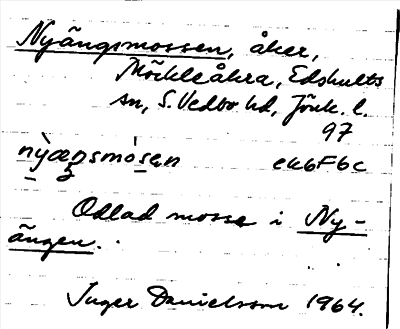 Nyängsmossen, åker,
Möckleåkra, Edshults
sn, S. Vedbo hd, Jönk. l.
97
nỳæŋsmòsen ek6F6c
Odlad mosse i Ny-
ängen.
Inger Danielsson 1964.